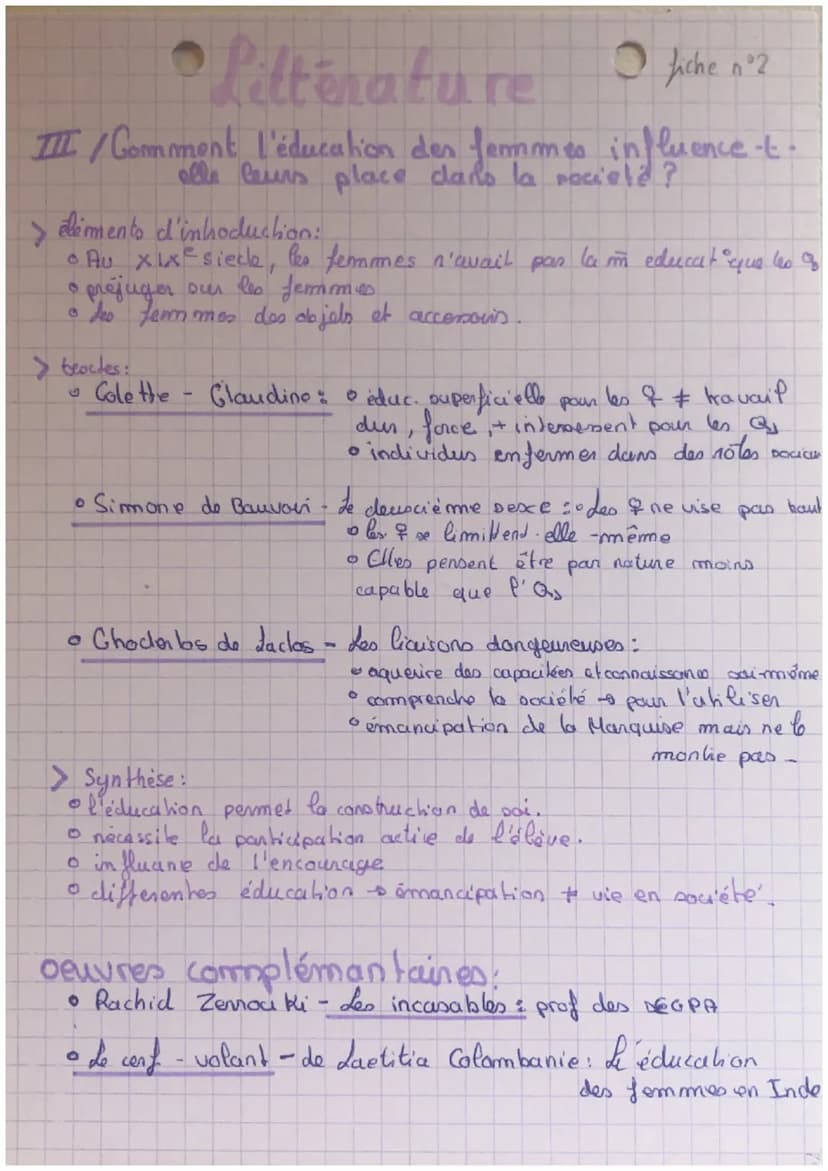 Littérature
fiche n°2
III / Comment l'éducation des femmes influence-t-
elle leurs place dans la société ?
> élémento d'introduction:
• Au XIXe siècle, les femmes n'avait pas la m̄ educat° que les ♂
• préjuger sur les femmes
• les femmes des objets et accessoirs.
> textes:
• Colette - Claudine : • éduc. superficielle pour les ♀ ≠ travail
dur, force, + intensement pour les ♂
• individus enfermer dans des rôles sociau
• Simone de Bauvoir - Le deuxcième sexe : • des ♀ ne vise pas haut
• les ♀ se limittend elle-même
• Elles pensent être par nature moins
capable que l'♂
• Choderlos de Laclos - Les liaisons dangeureuses :
• aquerire des capacitées et connaissances soi-même
• comprendre la société → pour l'utiliser
• émancipation de la Marquise mais ne le
montre pas -
> Synthèse :
• l'éducation permet la construction de soi.
• nécessite la participation active de l'élève.
• influane de l'encourage
• differentes éducation → émancipation ≠ vie en société.
oeuvres complémantaines:
• Rachid Zerrouki - Les incasables : prof des SEGPA
• Le cerf - volant - de Laetitia Colambanie : L'éducation
des femmes en Inde